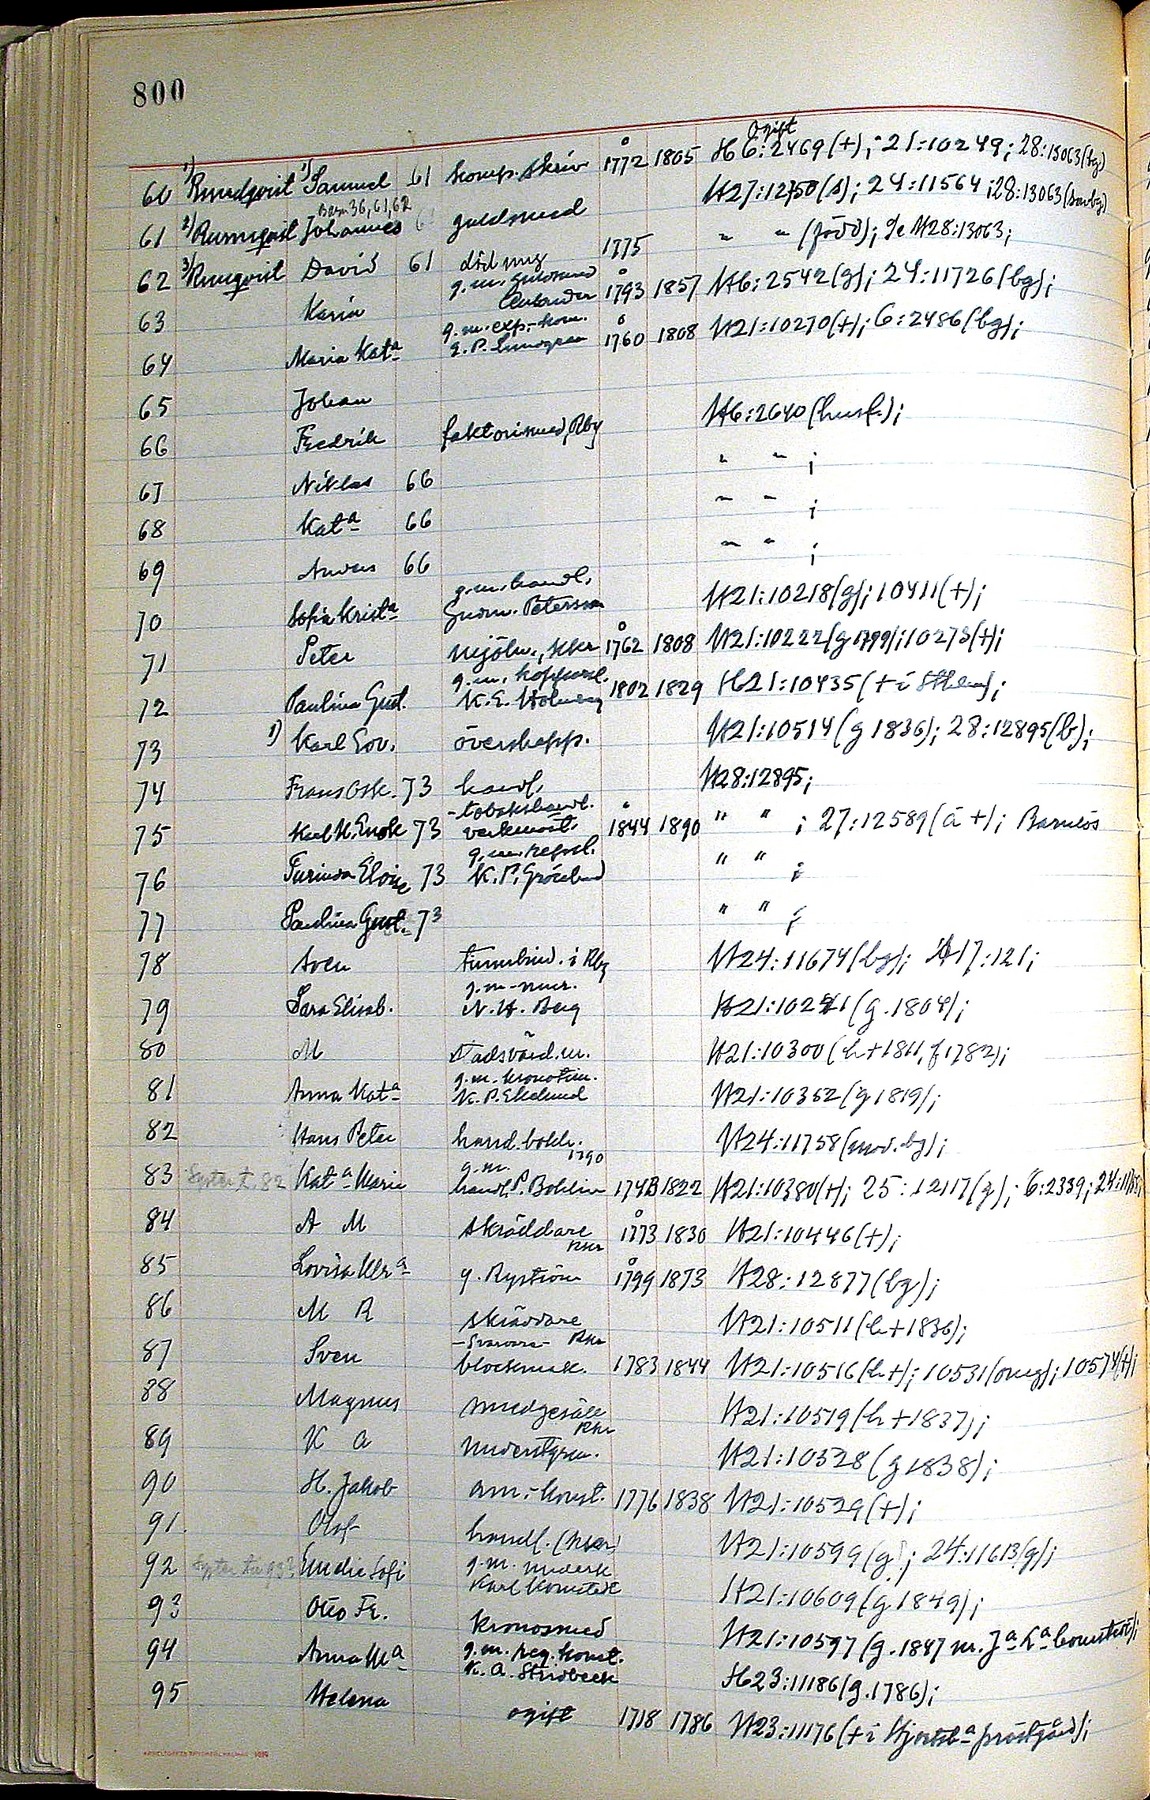 800
Ogift
60 1) Runqvist 1) Samuel 61 komp. skriv 1772 1805 H6:2469(+); 21:10249; 28:13063(bg)
Barn 36, 61, 62
61 2) Runnqvist Johannes guldsmed H27:12750(s); 24:11564; 28:13063
62 3) Runqvist David 61 död ung 1775 " " (född); Se H28:13063;
g.m. guldsmed
63 Maria 1793 1857 H6:2542(g); 24:11726(bg);
g.m. exp.-kom.
64 Maria Kata 1760 1808 H21:10270(+); 6:2486(bg);
65 Johan
66 Fredrik faktorismed, Rby H6:2640(husf.);
67 Niklas 66 " " ;
68 Kata 66 " " ;
69 66 " " ;
g.m. handl.
70 Sofia Krista Gudm. Petersson H21:10218(g); 10411(+);
71 Peter mjöln., Kkr 1762 1808 H21:10222(g 1799); 10273(+);
g.m. koffard.
72 Paulina Gust. K. E. 1802 1829 H21:10435(+ i Sthlm);
73 1) Karl Gov. överskepp. H21:10514(g 1836); 28:12895(b);
74 Frans Osk. 73 handl. H28:12895;
- tobakshandl.
75 Karl H. Enok 73 verkmäst. 1844 1890 " " ; 27:12589(a +); Barnlös
76 Turinda Eloise 73 K. P. Grönlund " " ;
77 Paulina Gust. 73 " " ;
78 Sven tunnbind. i Rby H24:11674(bg); A17:121;
g.m. mur.
79 Sara Elisab. N. H. Berg H21:10241(g. 1804);
80 M Stadsvård.m. H21:10300(h + 1811, f 1782);
g.m. kronotim.
81 Anna Kata K. P. Ekelund H21:10352(g 1819);
82 Hans Peter hand. bokh. H24:11758(mod. bg);
g.m. 1790
83 Syster t. 82 Kata Maria handl. P. Bohlin 1743 1822 H21:10380(+); 25:12117(g); 6:2339;
84 A M skräddare 1773 1830 H21:10446(+);
Kkr
85 Lovisa Ulra g. Nyström 1799 1873 H28:12877(bg);
86 M R skräddare H21:10511(h + 1836);
- Svarvare - Kkr
87 Sven blockmak. 1783 1844 H21:10516(h +); 10531(omg); 10574(+);
88 Magnus smedgesäll H21:10519(h + 1837);
Kkr
89 K A understyrm. H21:10528(g 1838);
90 H. Jakob am.-konst. 1776 1838 H21:10529(+);
91 Olof handl. (Kkr) H21:10599(g); 24:11613(g);
g.m. underk
92 Syster till 93? Emelie Sofi Karl Komstedt H21:10609(g. 1849);
93 Otto Fr. kronosmed H21:10597(g. 1847 m. Ja Ka Comstedt);
g.m. reg. konst.
94 Anna Ma K. A. Stridbeck H23:11186(g. 1786);
95 Helena ogift 1718 1786 H23:11176(+ i Hjortsba prästgård);